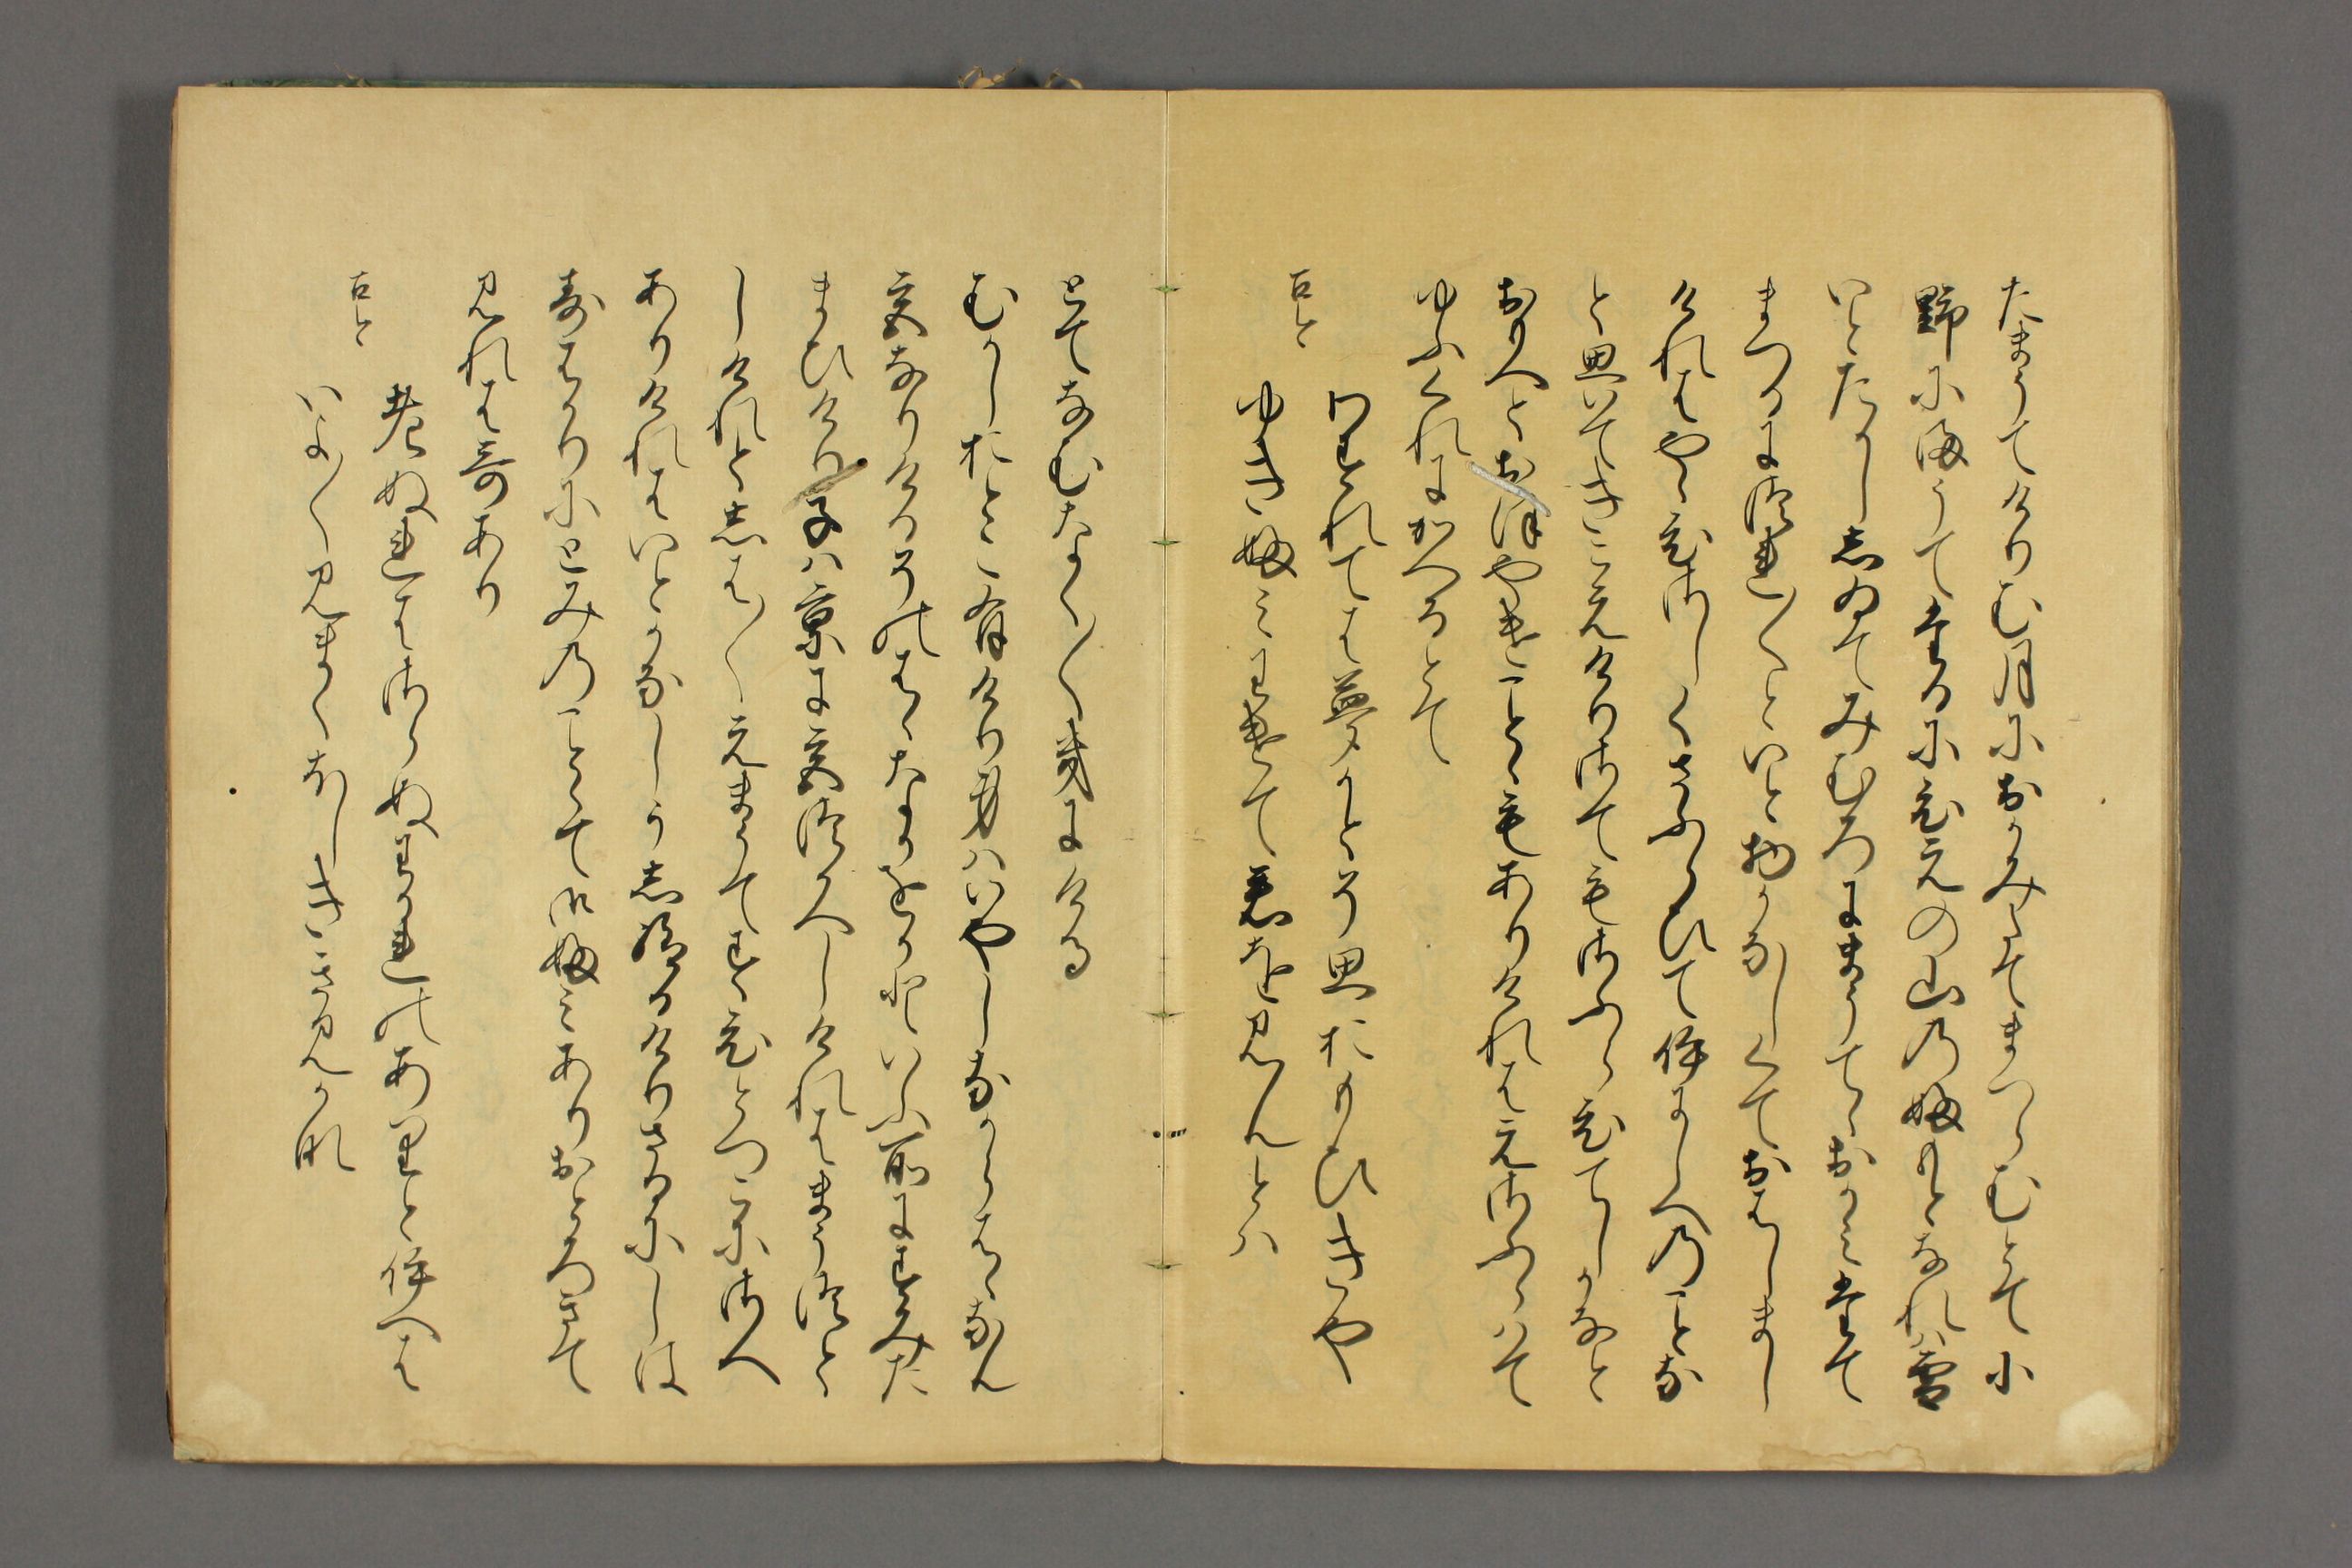 たまうてけりむ月におかみたてまつらむとて小
野にまうてたるにひえの山のふもとなれは雪
いとたかししゐてみむろにまうてゝおかみたて
まつるにつれ〱といと物かなしくておはしまし
けれはやゝひさしくさふらひていにしへのことな
と思いてきこえけりさてもさふらひてしかなと
おもへとおほやけことゝもありけれはえさふらはて
ゆふくれにかへるとて
古今
わすれては夢かとそ思おもひきや
ゆきふみわけて君を見んとは
とてなむなく〱きにける
むかしおとこ有けり身はいやしなからはゝなん
宮なりけるそのはゝなかをかといふ所にすみた
まひけり子は京に宮つかへしけれはまうつと
しけれとしは〱えまうてすひとつこにさへ
ありけれはいとかなしうし給ひけりさるにしは
すはかりにとみのことゝて御ふみありおとろきて
見れは哥あり
古今
老ぬれはさらぬわかれのありといへは
いよ〱見まくほしききみかな